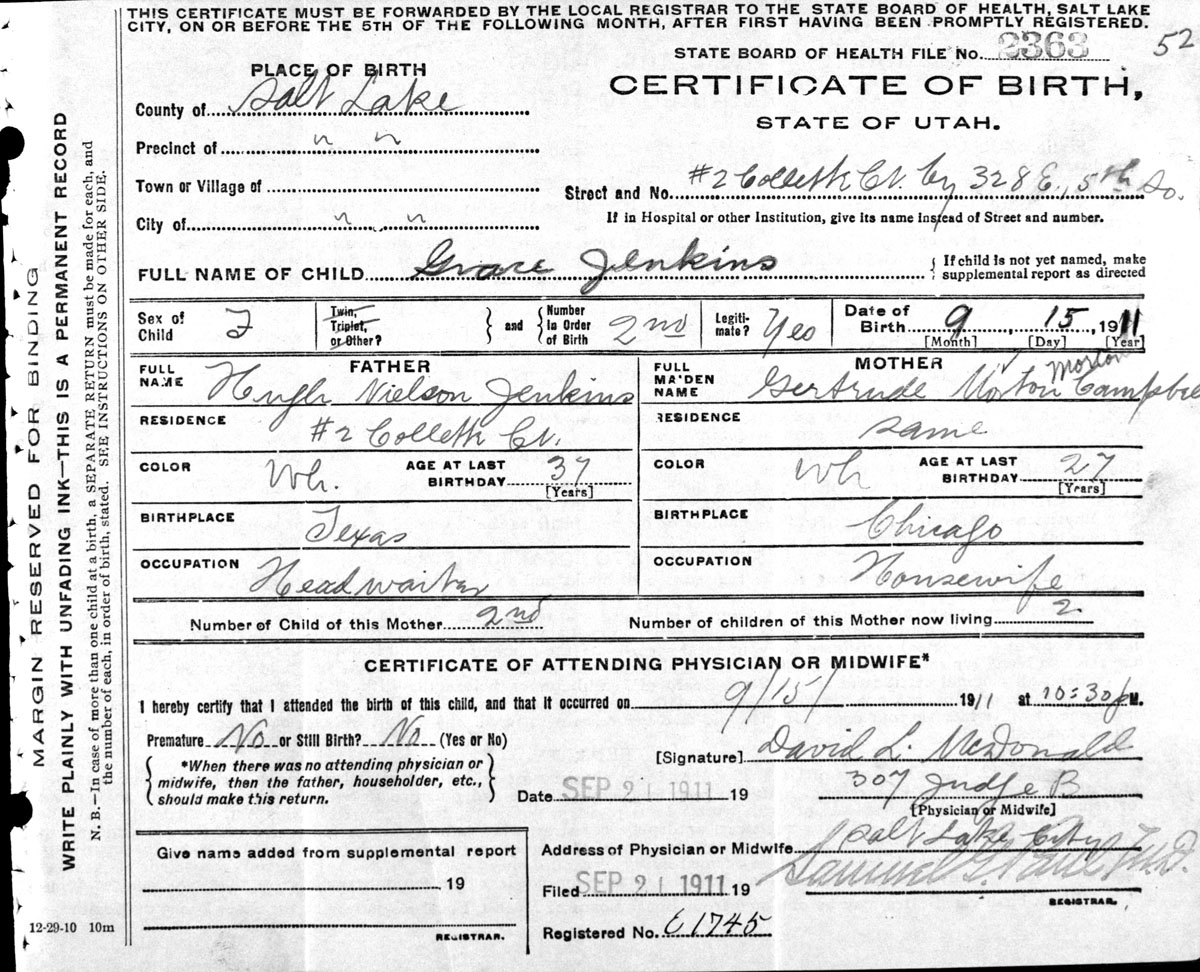 THIS CERTIFICATE MUST BE FORWARDED BY THE LOCAL REGISTRAR TO THE STATE BOARD OF HEALTH, SALT LAKE
CITY, ON OR BEFORE THE 5TH OF THE FOLLOWING MONTH, AFTER FIRST HAVING BEEN PROMPTLY REGISTERED.
STATE BOARD OF HEALTH FILE No. 2363 52
PLACE OF BIRTH
CERTIFICATE OF BIRTH,
STATE OF UTAH.
County of Salt Lake
Precinct of " "
Town or Village of
Street and No. #2 Colleth Ct. by 328 E., 5th So.
City of " "
If in Hospital or other Institution, give its name instead of Street and number.
FULL NAME OF CHILD Grace Jenkins { If child is not yet named, make
supplemental report as directed
Sex of Child F Twin, Triplet, or Other? } and { Number in Order of Birth 2nd Legiti-mate? Yes Date of Birth 9, 15, 1911
[Month] [Day] [Year]
FATHER
MOTHER
FULL NAME Hugh Nielson Jenkins
FULL MAIDEN NAME Gertrude Morton Campbell
Morton
RESIDENCE #2 Colleth Ct.
RESIDENCE same
COLOR Wh. AGE AT LAST BIRTHDAY 37 [Years]
COLOR Wh AGE AT LAST BIRTHDAY 27 [Years]
BIRTHPLACE Texas
BIRTHPLACE Chicago
OCCUPATION Headwaiter
OCCUPATION Housewife
Number of Child of this Mother 2nd Number of children of this Mother now living 2
CERTIFICATE OF ATTENDING PHYSICIAN OR MIDWIFE*
I hereby certify that I attended the birth of this child, and that it occurred on 9/15/ 1911 at 10:30 p M.
Premature No or Still Birth? No (Yes or No)
[Signature] David L. McDonald
{ *When there was no attending physician or
midwife, then the father, householder, etc.,
should make this return. }
Date SEP 21 1911 19
307 Judge B
[Physician or Midwife]
Give name added from supplemental report
19
REGISTRAR.
Address of Physician or Midwife Salt Lake City
Samuel G. Paul M.D.
Filed SEP 21 1911 19
REGISTRAR.
Registered No. C1745
12-29-10 10m
MARGIN RESERVED FOR BINDING
WRITE PLAINLY WITH UNFADING INK—THIS IS A PERMANENT RECORD
N. B.—In case of more than one child at a birth, a SEPARATE RETURN must be made for each, and
the number of each, in order of birth, stated. SEE INSTRUCTIONS ON OTHER SIDE.